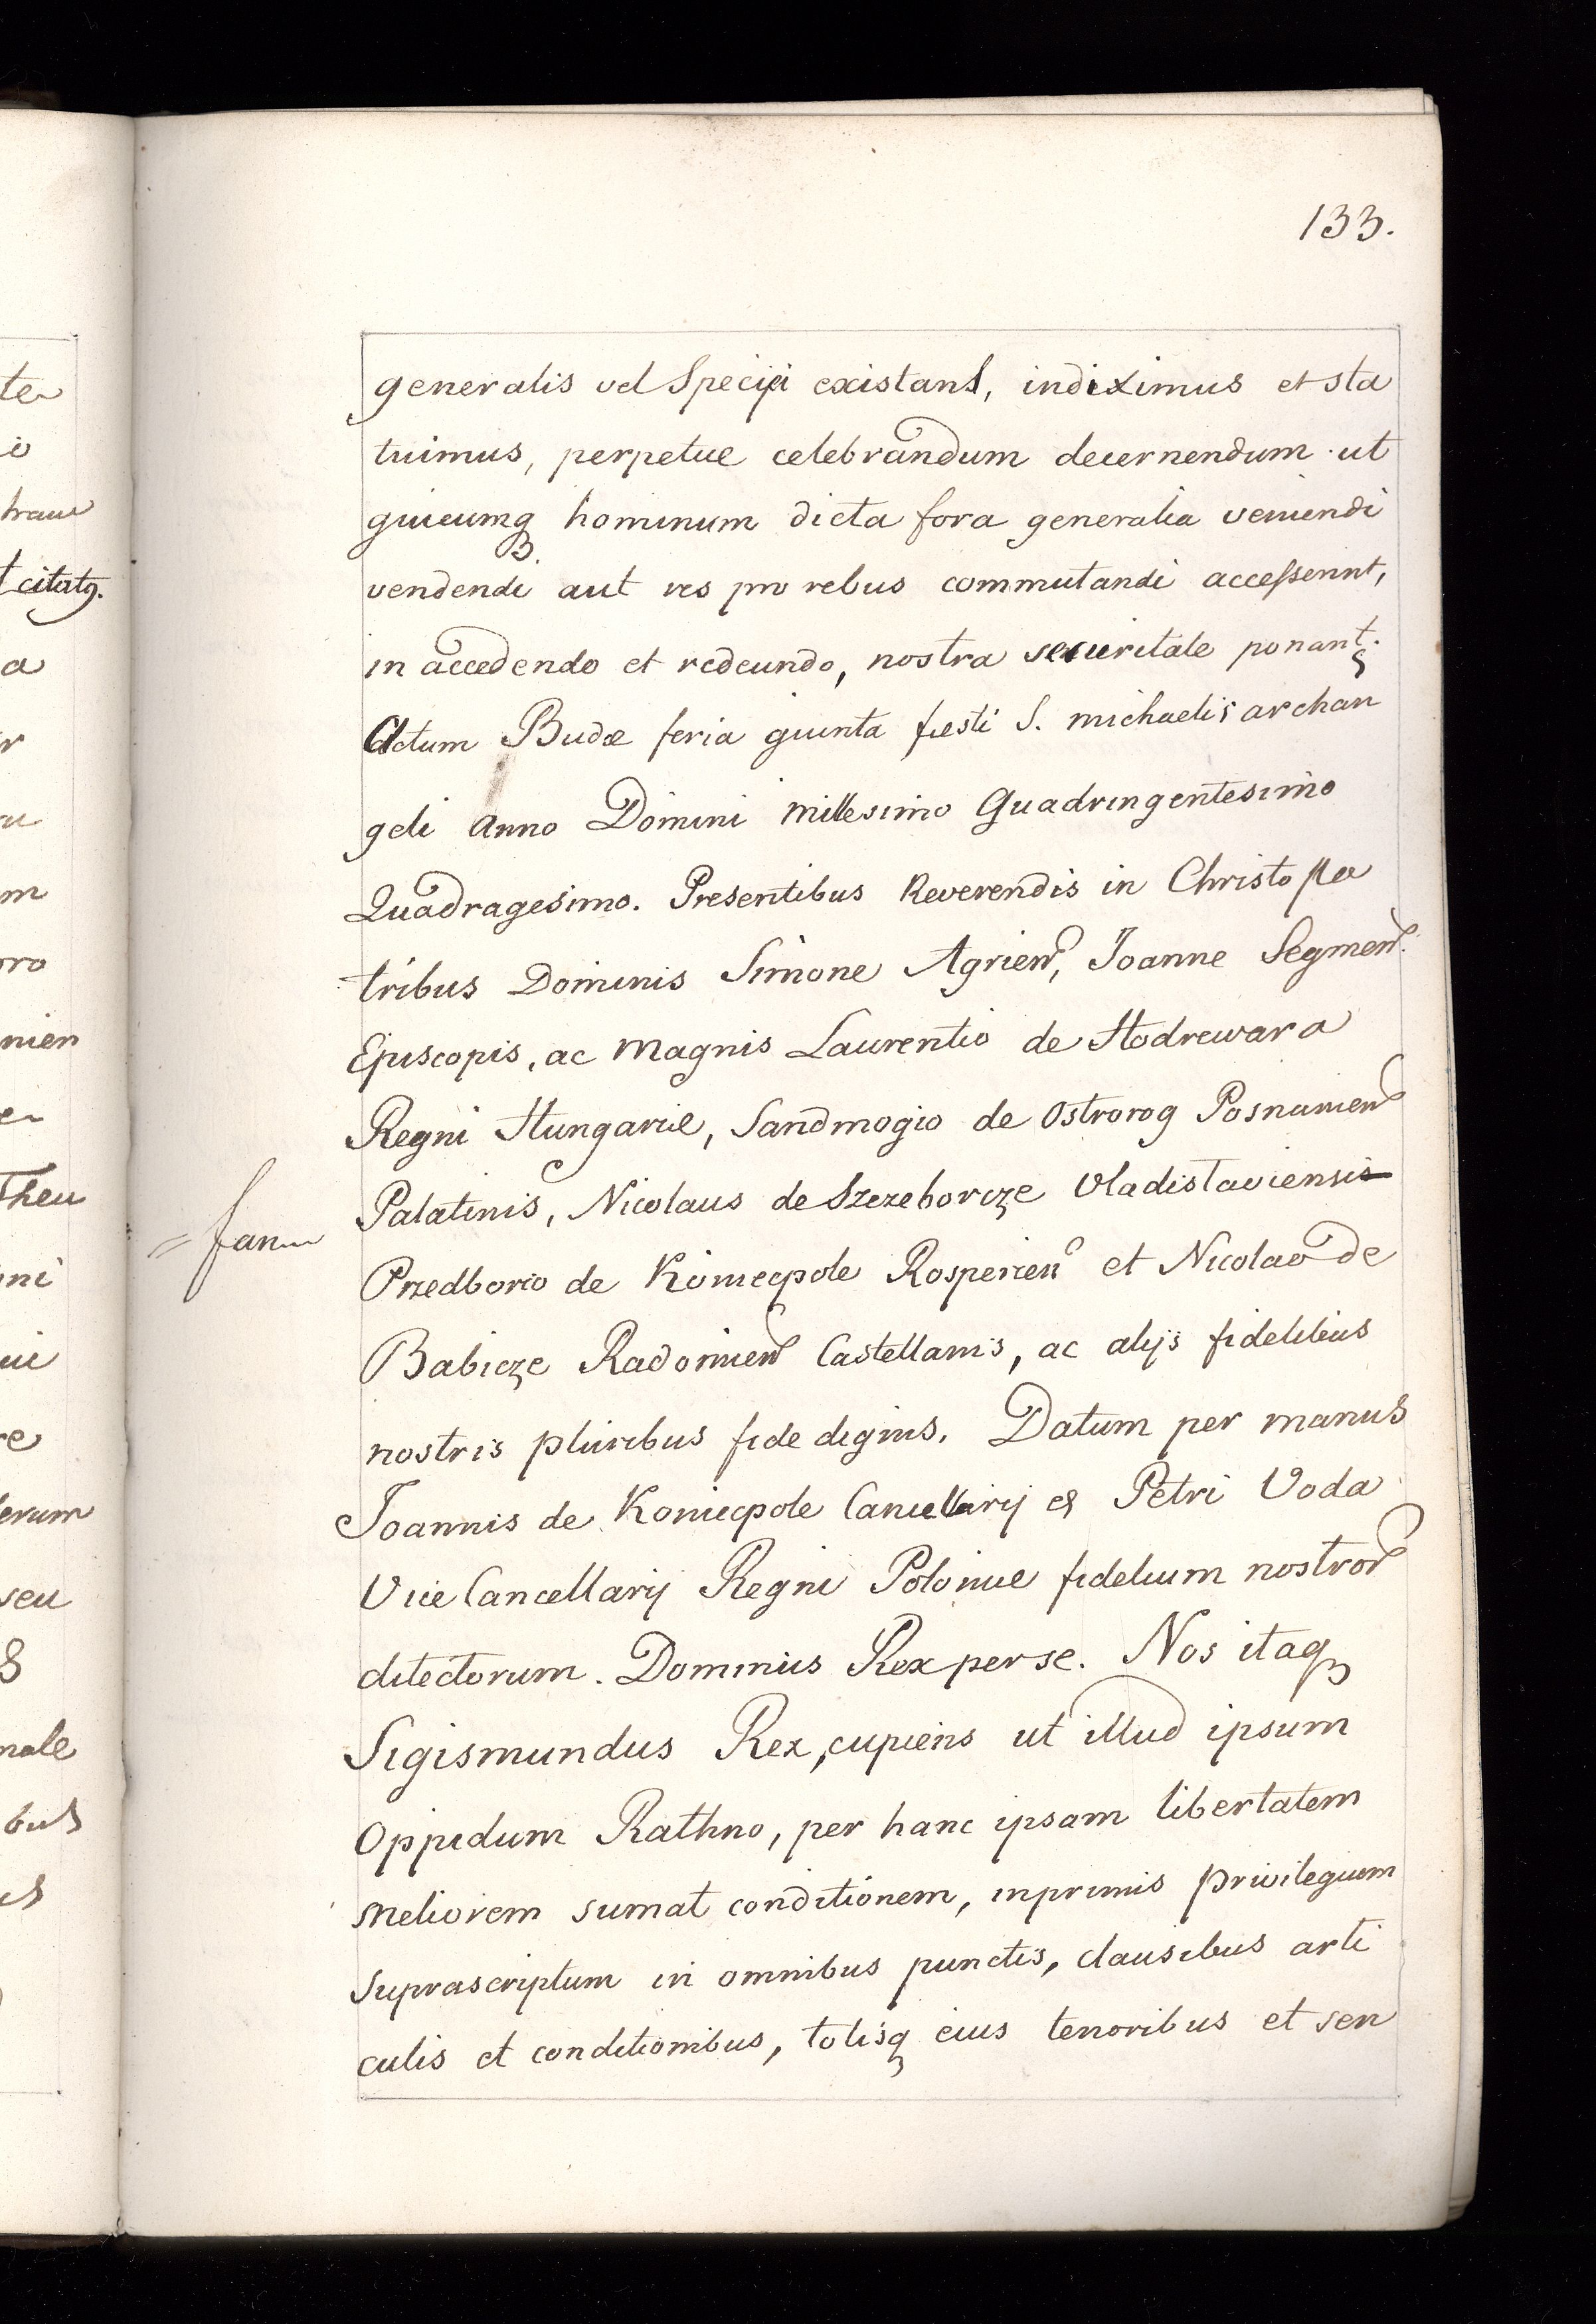 133.
generalis vel Specifi existant, indiximus et sta
tuimus, perpetue celebrandum decernendum ut
quicumq hominum dicta fora generalia veniendi
vendendi aut res pro rebus commutandi accesserint,
in accedendo et redeundo, nostra securitate ponant
Actum Budæ feria quinta festi S. michaelis archan
geli anno Domini millesimo Quadringentesimo
Quadragesimo. Presentibus Reverendis in Christo Pa
tribus Dominis Simone Agrien, Joanne Segmen.
Episcopis, ac Magnis Laurentio de Hodrewara
Regni Hungariæ, Sandmogio de Ostrorog Posnanien
Palatinis, Nicolaus de Szezeborcze Vladislaviensis
= fan
Przedborio de Koniecpole Rosperien et Nicolao de
Babicze Radomien Castellanis, ac alijs fidelibus
nostris pluribus fide dignis. Datum per manus
Joannis de Koniecpole Cancellarij et Petri Voda
Vice Cancellarij Regni Poloniæ fidelium nostror
dilectorum. Dominus Rex per se. Nos itaq
Sigismundus Rex, cupiens ut illud ipsum
Oppidum Rathno, per hanc ipsam libertatem
meliorem sumat conditionem, inprimis privilegium
suprascriptum in omnibus punctis, clausibus arti
culis et conditionibus, totisq eius tenoribus et sen